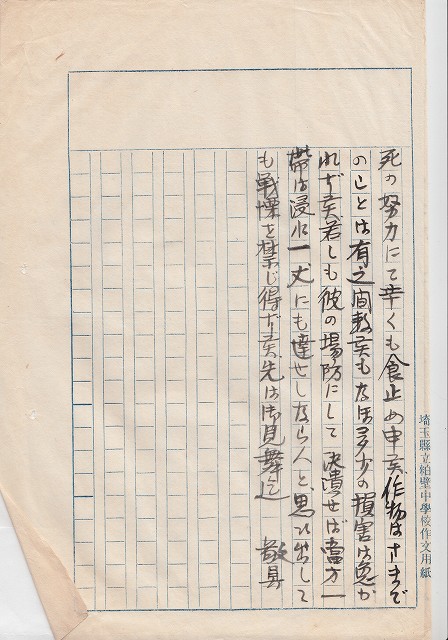 死の努力にて辛くも食止め申候作物はさまで
のことは有之間敷候もなほ多少の損害は免か
れず候若しも彼の場防にして決潰せば当方一
帯は浸水一丈にも達せしならんと思ひ出して
も戦慄を禁じ得ず候先は御見舞迄　敬具
埼玉縣立粕壁中學校作文用紙